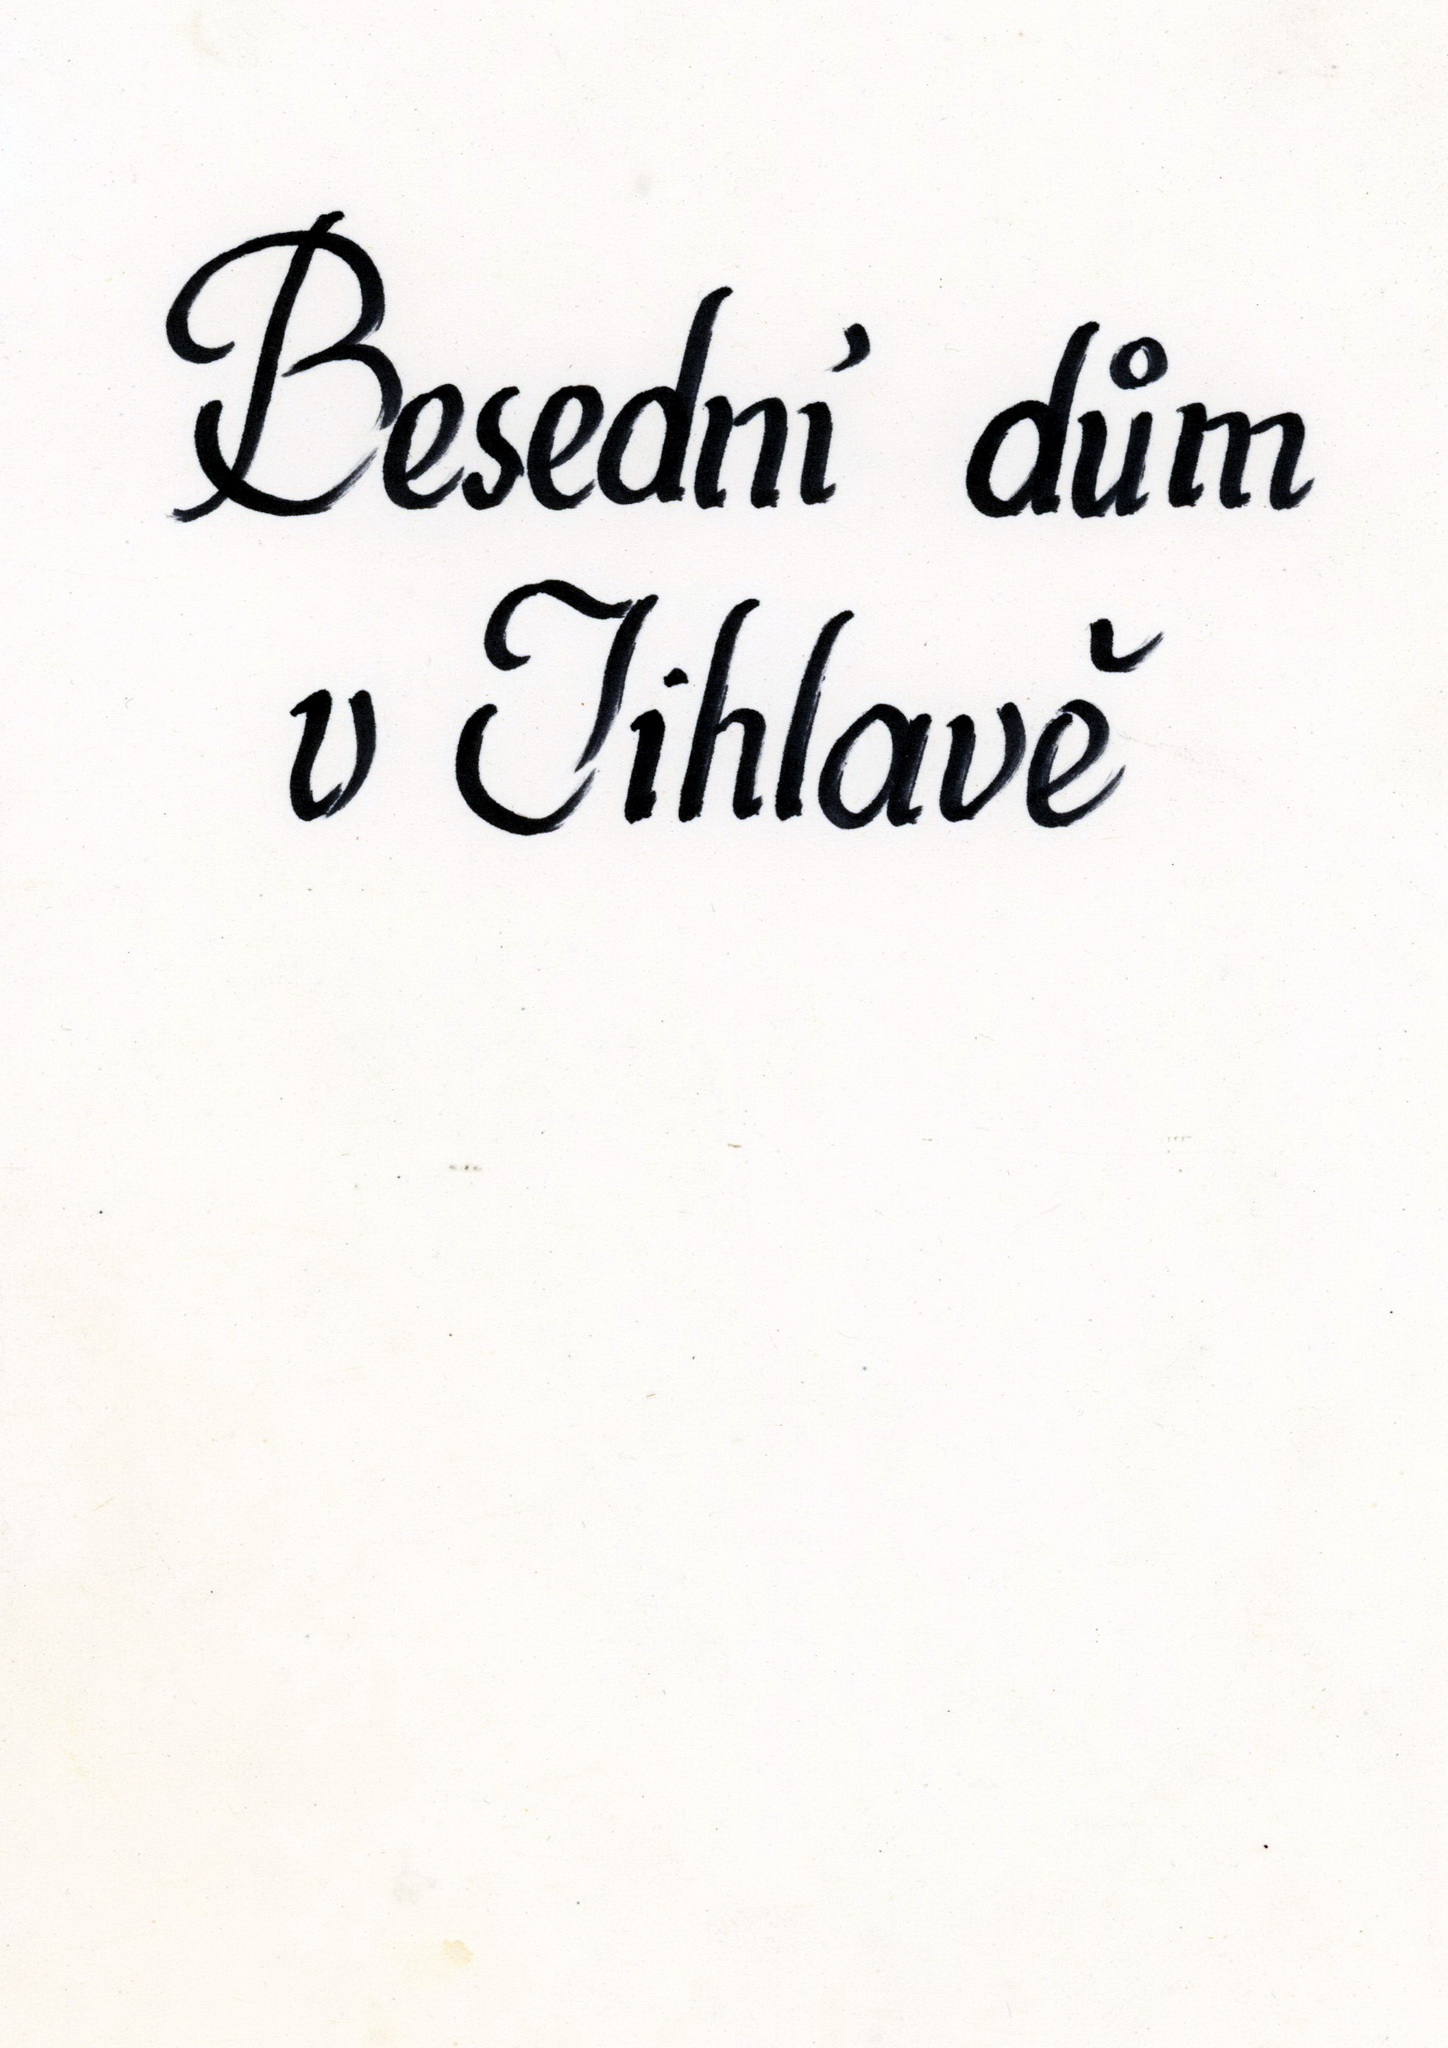 Besední dům
v Jihlavě